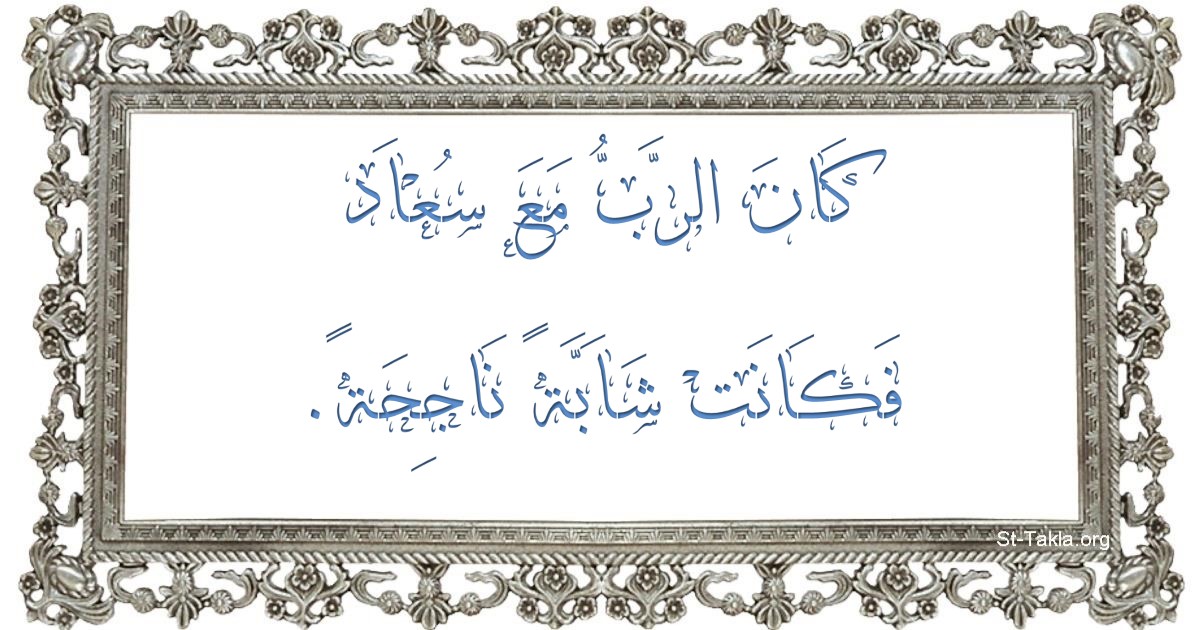 كَانَ الرَّبُّ مَعَ سُعَادَ
فَكَانَتْ شَابَّةً نَاجِحَةً.
St-Takla.org